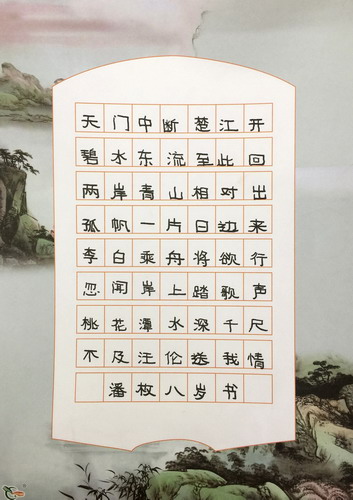 天门中断楚江开
碧水东流至此回
两岸青山相对出
孤帆一片日边来
李白乘舟将欲行
忽闻岸上踏歌声
桃花潭水深千尺
不及汪伦送我情
潘枚八岁书